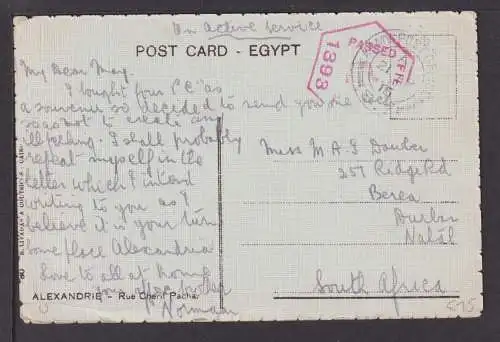 On Active Service
POST CARD - EGYPT
PASSED
1393
My Dear May,
I bought four P.C. as
a souvenir so decided to send you one
so as not to create any
illfeeling. I shall probably
repeat myself in the
letter which I intend
writing to you as I
believe it is your turn
bone place Alexandria
Love to all at home
your
Norman
Miss M A I
257 Ridge Rd
Berea
Durban
Natal
South Africa
60
ALEXANDRIE - Rue Cherif Pacha
575